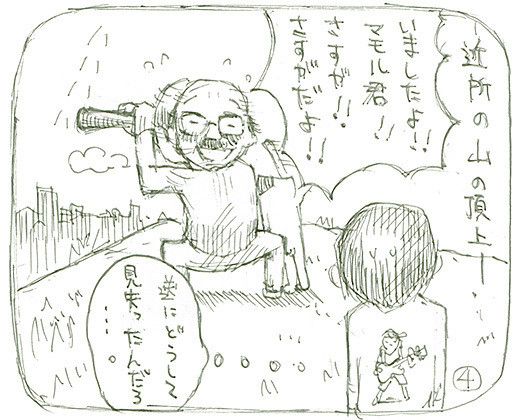 ―近所の山の頂上―
いましたよ!!
マモル君!!
さすが!!
さすがだよ!!
逆にどうして
見失ったんだろ
……
④